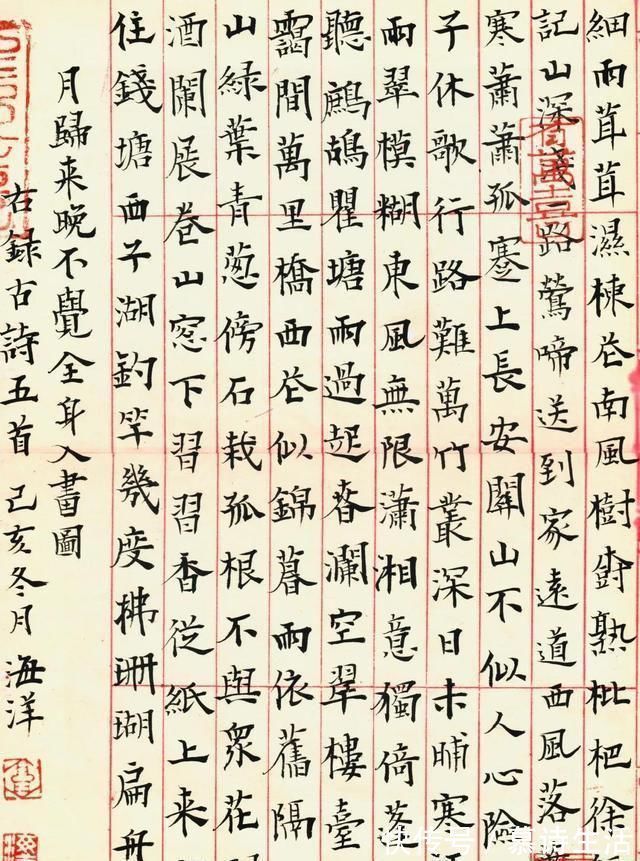 細雨茸茸濕楝花南風樹樹熟枇杷徐
記山深淺一路鶯啼送到家遠道西風落
寒蕭蕭孤蹇上長安關山不似人心險
子休歌行路難萬竹叢深日未晡寒
雨翠模糊東風無限瀟湘意獨倚
聽鷓鴣瞿塘雨過起春瀾空翠樓臺
靄間萬里橋西花似錦暮雨依舊隔
山綠葉青葱傍石栽孤根不與眾花
酒闌展卷山窓下習習香從紙上來
住錢塘西子湖釣竿幾度拂珊瑚扁舟
月歸来晚不覺全身入畫圖
右錄古詩五首己亥冬月海洋
快传号/慕诗生活